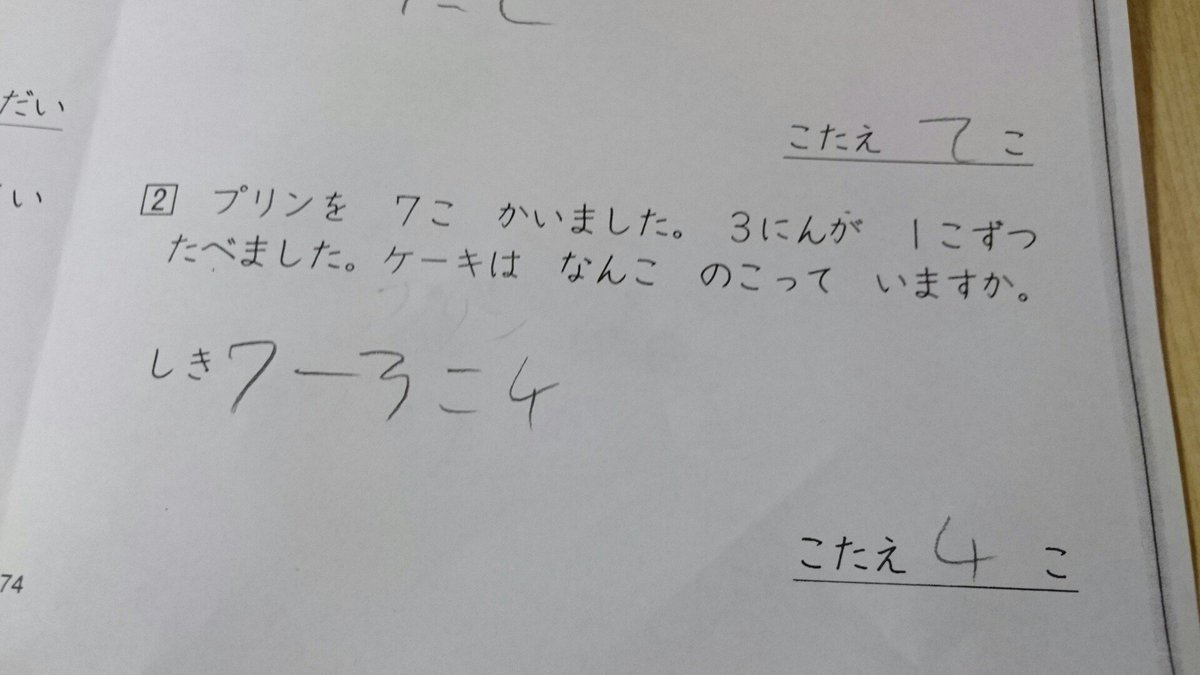 だい
い
こたえ 7 こ
2 プリンを 7こ かいました。 3にんが 1こずつ
たべました。ケーキは なんこ のこって いますか。
しき 7-3=4
こたえ 4 こ
74